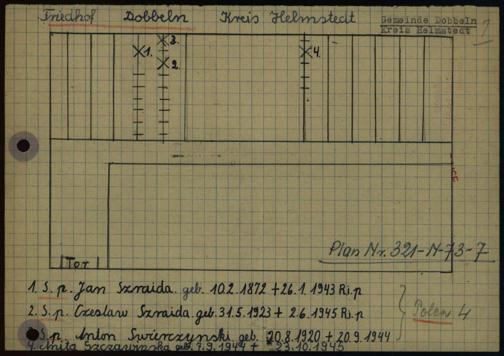 Friedhof Dobbeln Kreis Helmstedt
Gemeinde Dobbeln
Kreis Helmstedt
1
3.
1.
2.
4.
Plan Nr. 321-N-73-7
Tor
1. S. p. Jan Szraida geb. 10.2.1872 + 26.1.1943 R.i.p
2. S. p. Czeslaw Szraida geb. 31.5.1923 + 2.6.1945 R.i.p
S. p. Anton Swierczynski geb. 20.8.1920 + 20.9.1944
4. Anita geb. 7.9.1944 + 23.10.1945
Polen 4